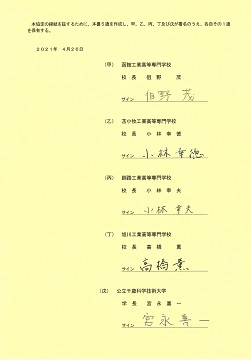 本協定の締結を証するために、本書5通を作成し、甲、乙、丙、丁及び戊が署名のうえ、各自その1通
を保有する。
2021年 4月26日
(甲) 函館工業高等専門学校
校 長 但野 茂
サイン 但野 茂
(乙) 苫小牧工業高等専門学校
校 長 小林 幸徳
サイン 小林 幸徳
(丙) 釧路工業高等専門学校
校 長 小林 幸夫
サイン 小林 幸夫
(丁) 旭川工業高等専門学校
校 長 高橋 薫
サイン 高橋 薫
(戊) 公立千歳科学技術大学
学 長 宮永 喜一
サイン 宮永 喜一